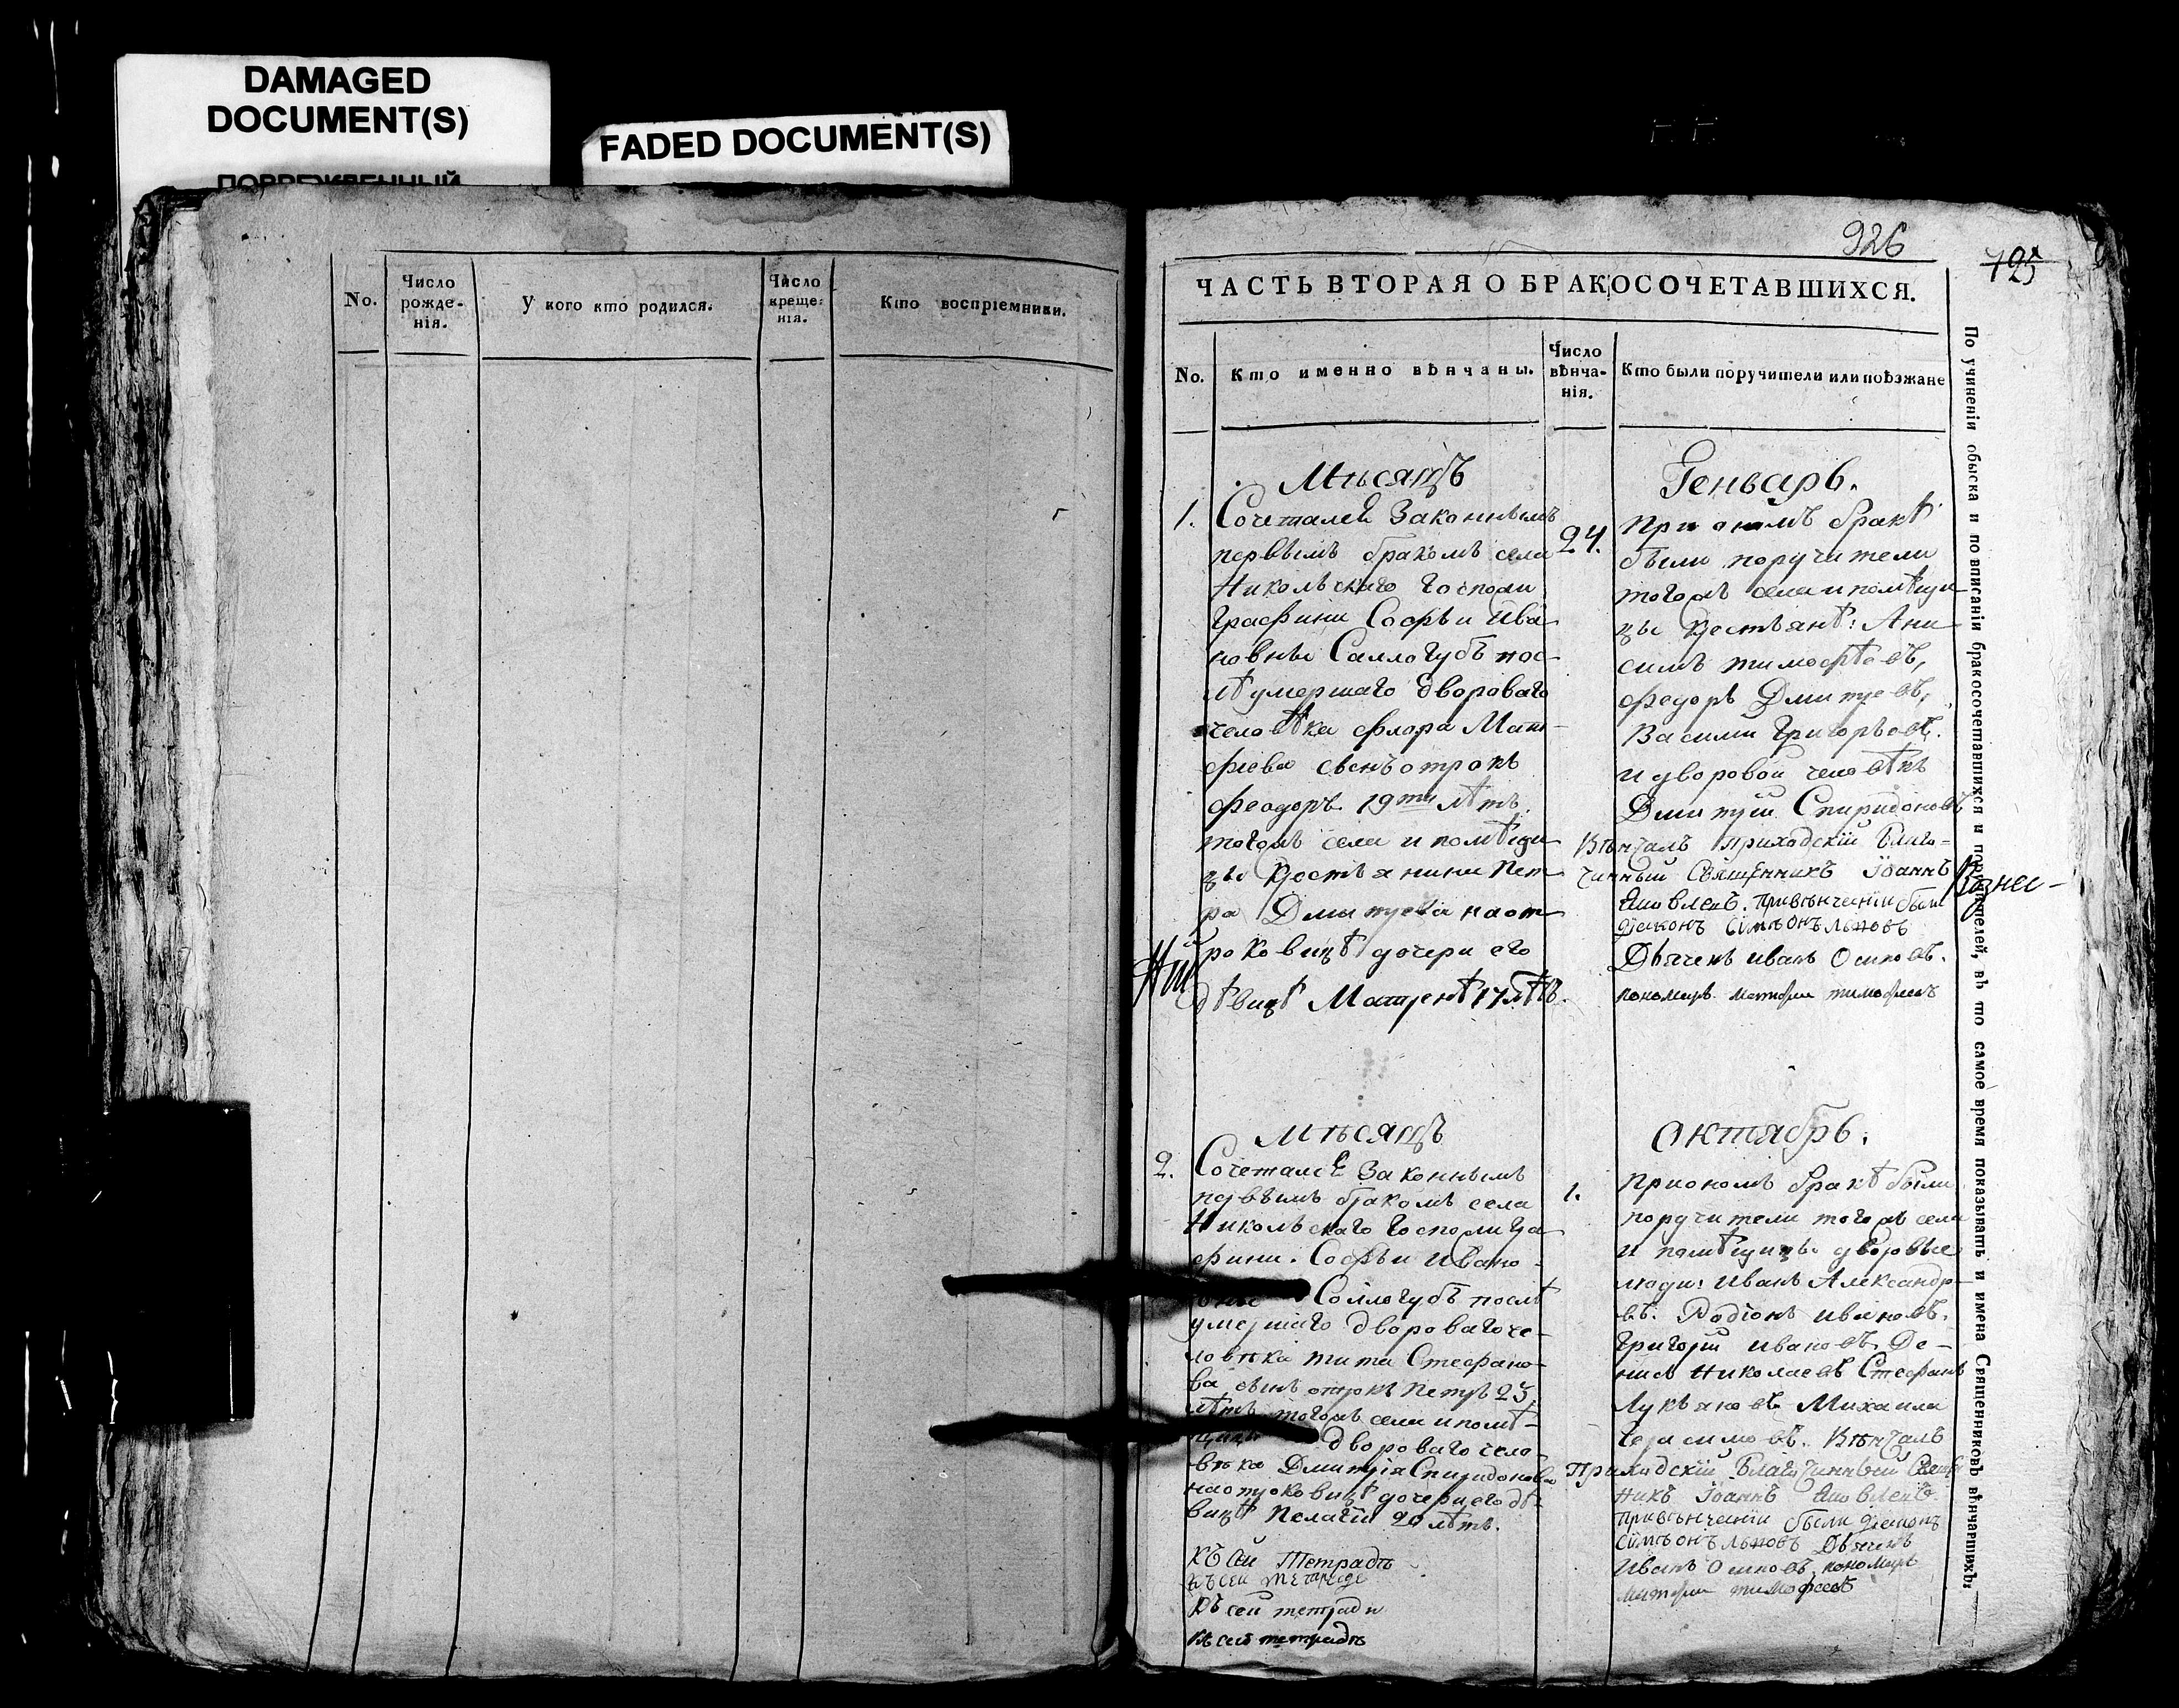 DAMAGED
DOCUMENT(S)
ПОВРЕЖДЕННЫЙ
FADED DOCUMENT(S)
No.
Число
рожде-
нія.
У кого кто родился.
Число
креще-
нія.
Кто воспріемники.
926
195
ЧАСТЬ ВТОРАЯ О БРАКОСОЧЕТАВШИХСЯ.
No.
Кто именно вѣнчаны.
Число
вѣнча-
нія.
Кто были поручители или поѣзжане
Мѣсяцъ
Генварь.
1.
Сочетался Законнымъ
первымъ бракомъ села
Никольскаго Госпожи
Графини Софьи Ива-
новны Саллогубъ пос-
лѣ умершаго дворового
человѣка Флора Мат-
фіева сынъ отрокъ
Феодоръ 19ти лѣтъ.
тогожъ села и помѣщи-
цы крестьянина Пет-
ра Дмитрева на от-
роковицѣ дочери его
дѣвицѣ Матренѣ 17 лѣтъ.
24.
При ономъ бракѣ
были поручители
тогожъ села и помѣщи-
цы крестьянѣ: Ани-
симъ тимофѣевъ,
федоръ Дмитревъ,
Василий Григорьевъ.
и дворовой человѣкъ
Дмитрій Спиридоновъ
Вѣнчалъ приходскій Благо-
чинный Священникъ Іоаннъ
Яковлевъ. При вѣнчаніи были
діаконъ Сімеонъ Львовъ
Дьячекъ иванъ Осиповъ.
пономарь матфей тимофеевъ
Вознес-
Мѣсяцъ
октябрь.
2.
Сочетался Законнымъ
первымъ бракомъ села
Никольскаго Госпожи гра-
фини. Софьи Ивано-
вны Соллогубъ послѣ
умершаго двороваго че-
ловѣка тита Стефано-
ва сынъ отрокъ Петръ 23
лѣтъ тогожъ села и помѣ-
щицы двороваго чело-
вѣка Дмитрія Спиридонова
на отроковицѣ дочери его дѣ-
вицѣ Пелагіи 20 лѣтъ.
1.
При ономъ бракѣ были
поручители тогожъ села
и помѣщицы дворовые
люди: Иванъ Александро-
въ. Родіонъ ивановъ.
Григорій ивановъ. Де-
нисъ Николаевъ Стефанъ
Лукьяновъ Михаила
Герасимовъ. Вѣнчалъ
Приходскій Благочинный Священ-
никъ Іоаннъ Яковлевъ.
При вѣнчаніи были діаконъ
Сімеонъ Львовъ Дьячекъ
Иванъ Осиповъ, пономарь
матфей тимофеевъ
Къ сей Тетрадѣ
Къ сей
Къ сей тетради
Къ сей тетрадѣ
По учиненіи обыска и по вписаніи бракосочетавшихся и поручителей, въ то самое время показывать и имена Священниковъ вѣнчавшихъ.